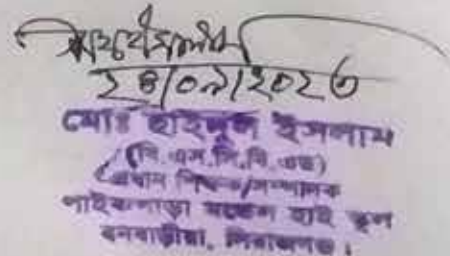 ২৪/০৯/২০২৩
মোঃ হাইদুল ইসলাম
(বি.এস.সি.বি.এড)
প্রধান শিক্ষক/সম্পাদক
পাইকপাড়া মডেল হাই স্কুল
বনবাড়ীয়া, সিরাজগঞ্জ।